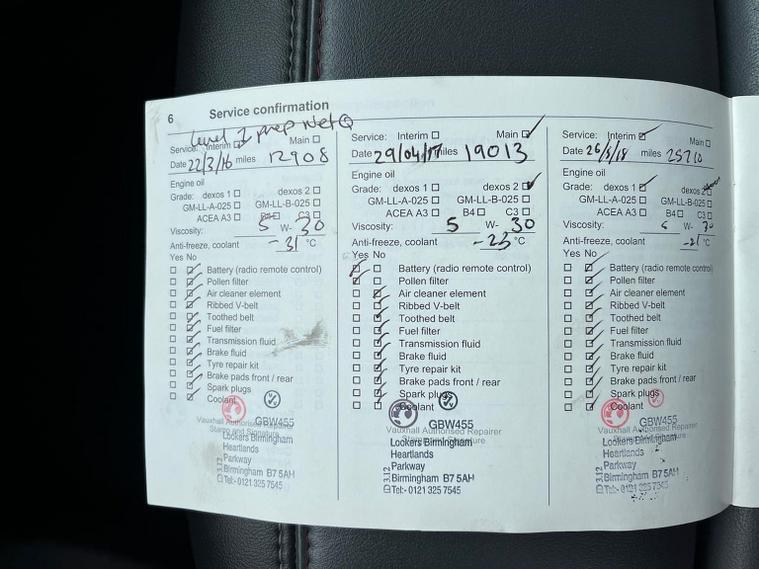 6 Service confirmation
Level 1 prep
Service: Interim ☐ Main ☐
Date 22/3/16 miles 12908
Engine oil
Grade: dexos 1 ☐ dexos 2 ☐
GM-LL-A-025 ☐ GM-LL-B-025 ☐
ACEA A3 ☐ B4 ☐ C3 ☐
Viscosity: 5 W- 30
Anti-freeze, coolant -31 °C
Yes No
Battery (radio remote control)
Pollen filter
Air cleaner element
Ribbed V-belt
Toothed belt
Fuel filter
Transmission fluid
Brake fluid
Tyre repair kit
Brake pads front / rear
Spark plugs
Coolant
GBW455
Vauxhall Authorised Repairer
Stamp and Signature
Lookers Birmingham
Heartlands
Parkway
Birmingham B7 5AH
Tel:- 0121 325 7545
Service: Interim ☐ Main ☑
Date 29/04/17 miles 19013
Engine oil
Grade: dexos 1 ☐ dexos 2 ☑
GM-LL-A-025 ☐ GM-LL-B-025 ☐
ACEA A3 ☐ B4 ☐ C3 ☐
Viscosity: 5 W- 30
Anti-freeze, coolant -25 °C
Yes No
Battery (radio remote control)
Pollen filter
Air cleaner element
Ribbed V-belt
Toothed belt
Fuel filter
Transmission fluid
Brake fluid
Tyre repair kit
Brake pads front / rear
Spark plugs
Coolant
GBW455
Vauxhall Authorised Repairer
Stamp and Signature
Lookers Birmingham
Heartlands
Parkway
Birmingham B7 5AH
Tel:- 0121 325 7545
Service: Interim ☑ Main ☐
Date miles 25710
Engine oil
Grade: dexos 1 ☑ dexos 2
GM-LL-A-025 ☐ GM-LL-B-025 ☐
ACEA A3 ☐ B4 ☐ C3 ☐
Viscosity: W- 30
Anti-freeze, coolant -21 °C
Yes No
Battery (radio remote control)
Pollen filter
Air cleaner element
Ribbed V-belt
Toothed belt
Fuel filter
Transmission fluid
Brake fluid
Tyre repair kit
Brake pads front / rear
Spark plugs
Coolant
GBW455
Vauxhall Authorised Repairer
Stamp and Signature
Lookers Birmingham
Heartlands
Parkway
Birmingham B7 5AH
Tel:- 0121 325 7545